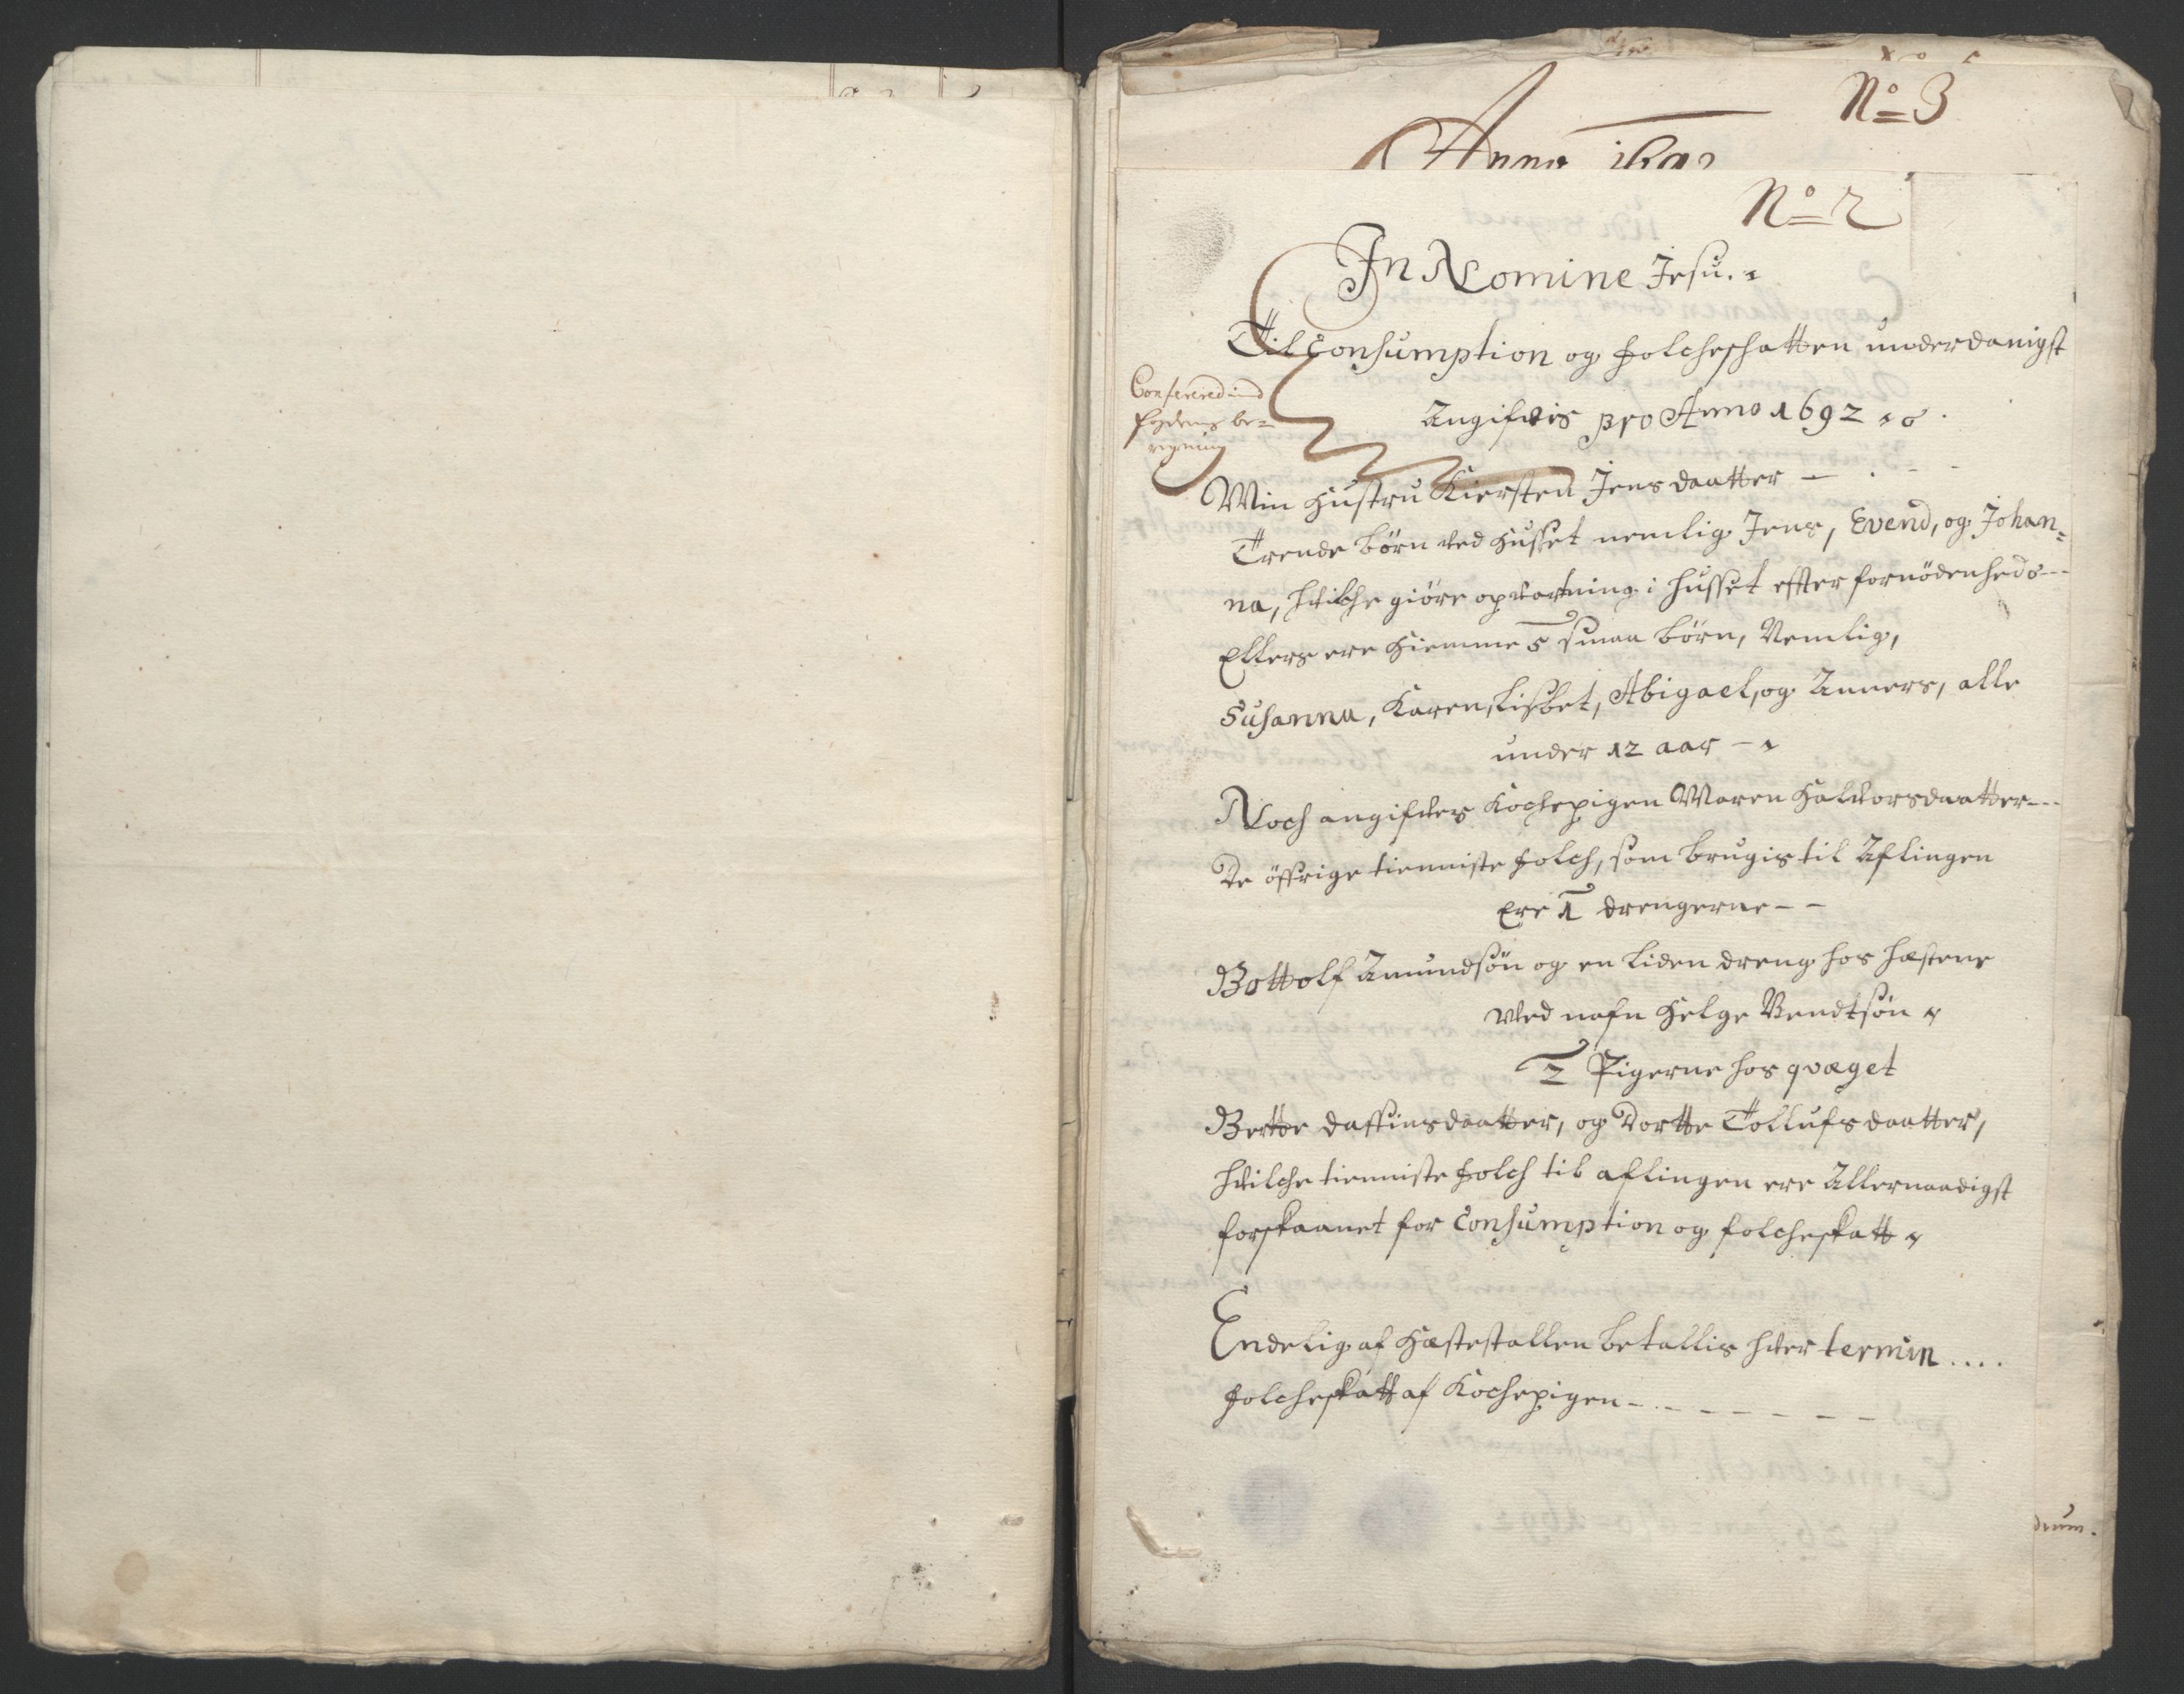 No 3
Anno 1692
No 2
In Nomine Jesu.
Til Consumption og Folcheschatten underdanigst
Angifvis pro Anno 1692
Conferered imod
fogdens be=
regning
Min Hustru Kiersten Jensdaatter —
Trende børn ved Husset nemlig Jens, Evend, og Johan=
na, hvilche giøre opvartning i Husset effter fornödenheds —
Ellers ere hiemme 5 smaa børn, Nemlig,
Susanna, Karen, Lisbet, Abigael, og Anners, alle
under 12 aar —
Noch angifves Kochepigen Maren Halvorsdaatter —
De öffrige tienniste Folch, som brugis til Aflingen
Ere 1 drengerne — —
Bottolf Amundsøn og en liden dreng hos hæstene
Ved nafn Helge Bendtsøn
2 Pigerne hos qvæget
Berte Daffinsdaatter, og Dortte Tollufsdaatter,
hvilche tienniste Folch til aflingen ere Allernaadigst
forskaanet for Consumption og folcheskatt
Endelig af Hæstestallen betallis hver termin ....
Folcheskatt af Kochepigen — — — — — — —